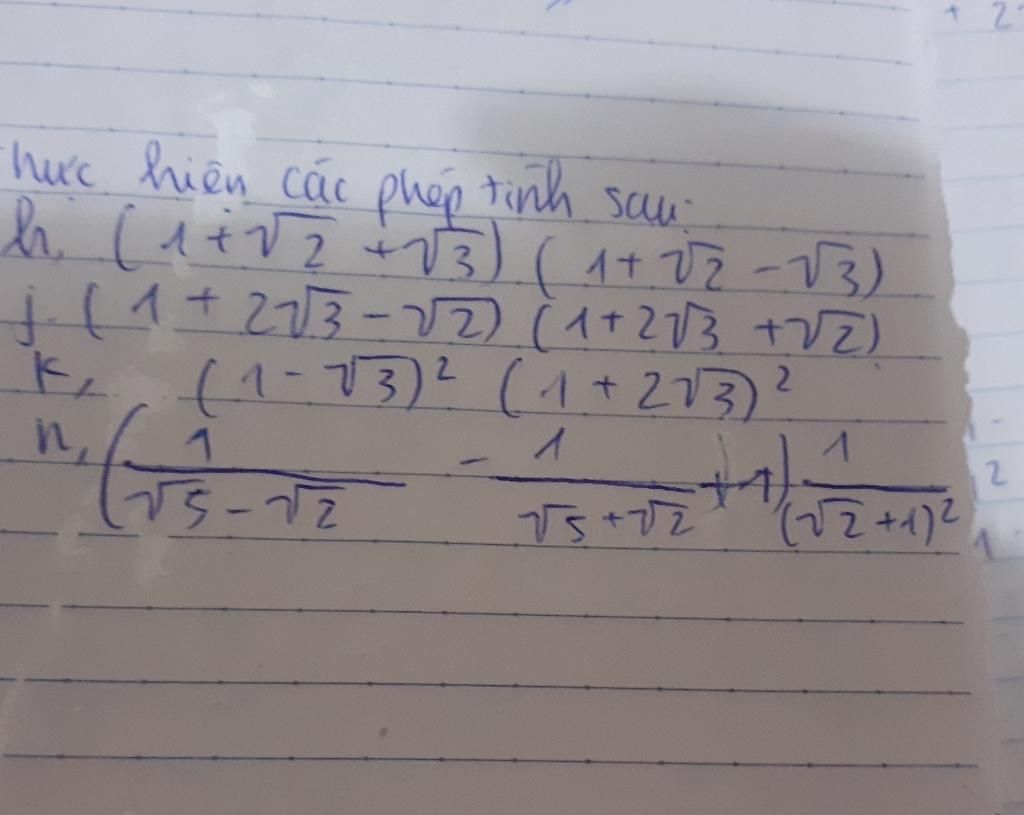 hực hiện các phép tính sau:
h, (1+√2 +√3) (1+√2 -√3)
j. (1 + 2√3 - √2) (1+2√3 +√2)
k, (1-√3)² (1+2√3)²
n, (1/(√5-√2) - 1/(√5+√2) + 1) 1/(√2+1)²